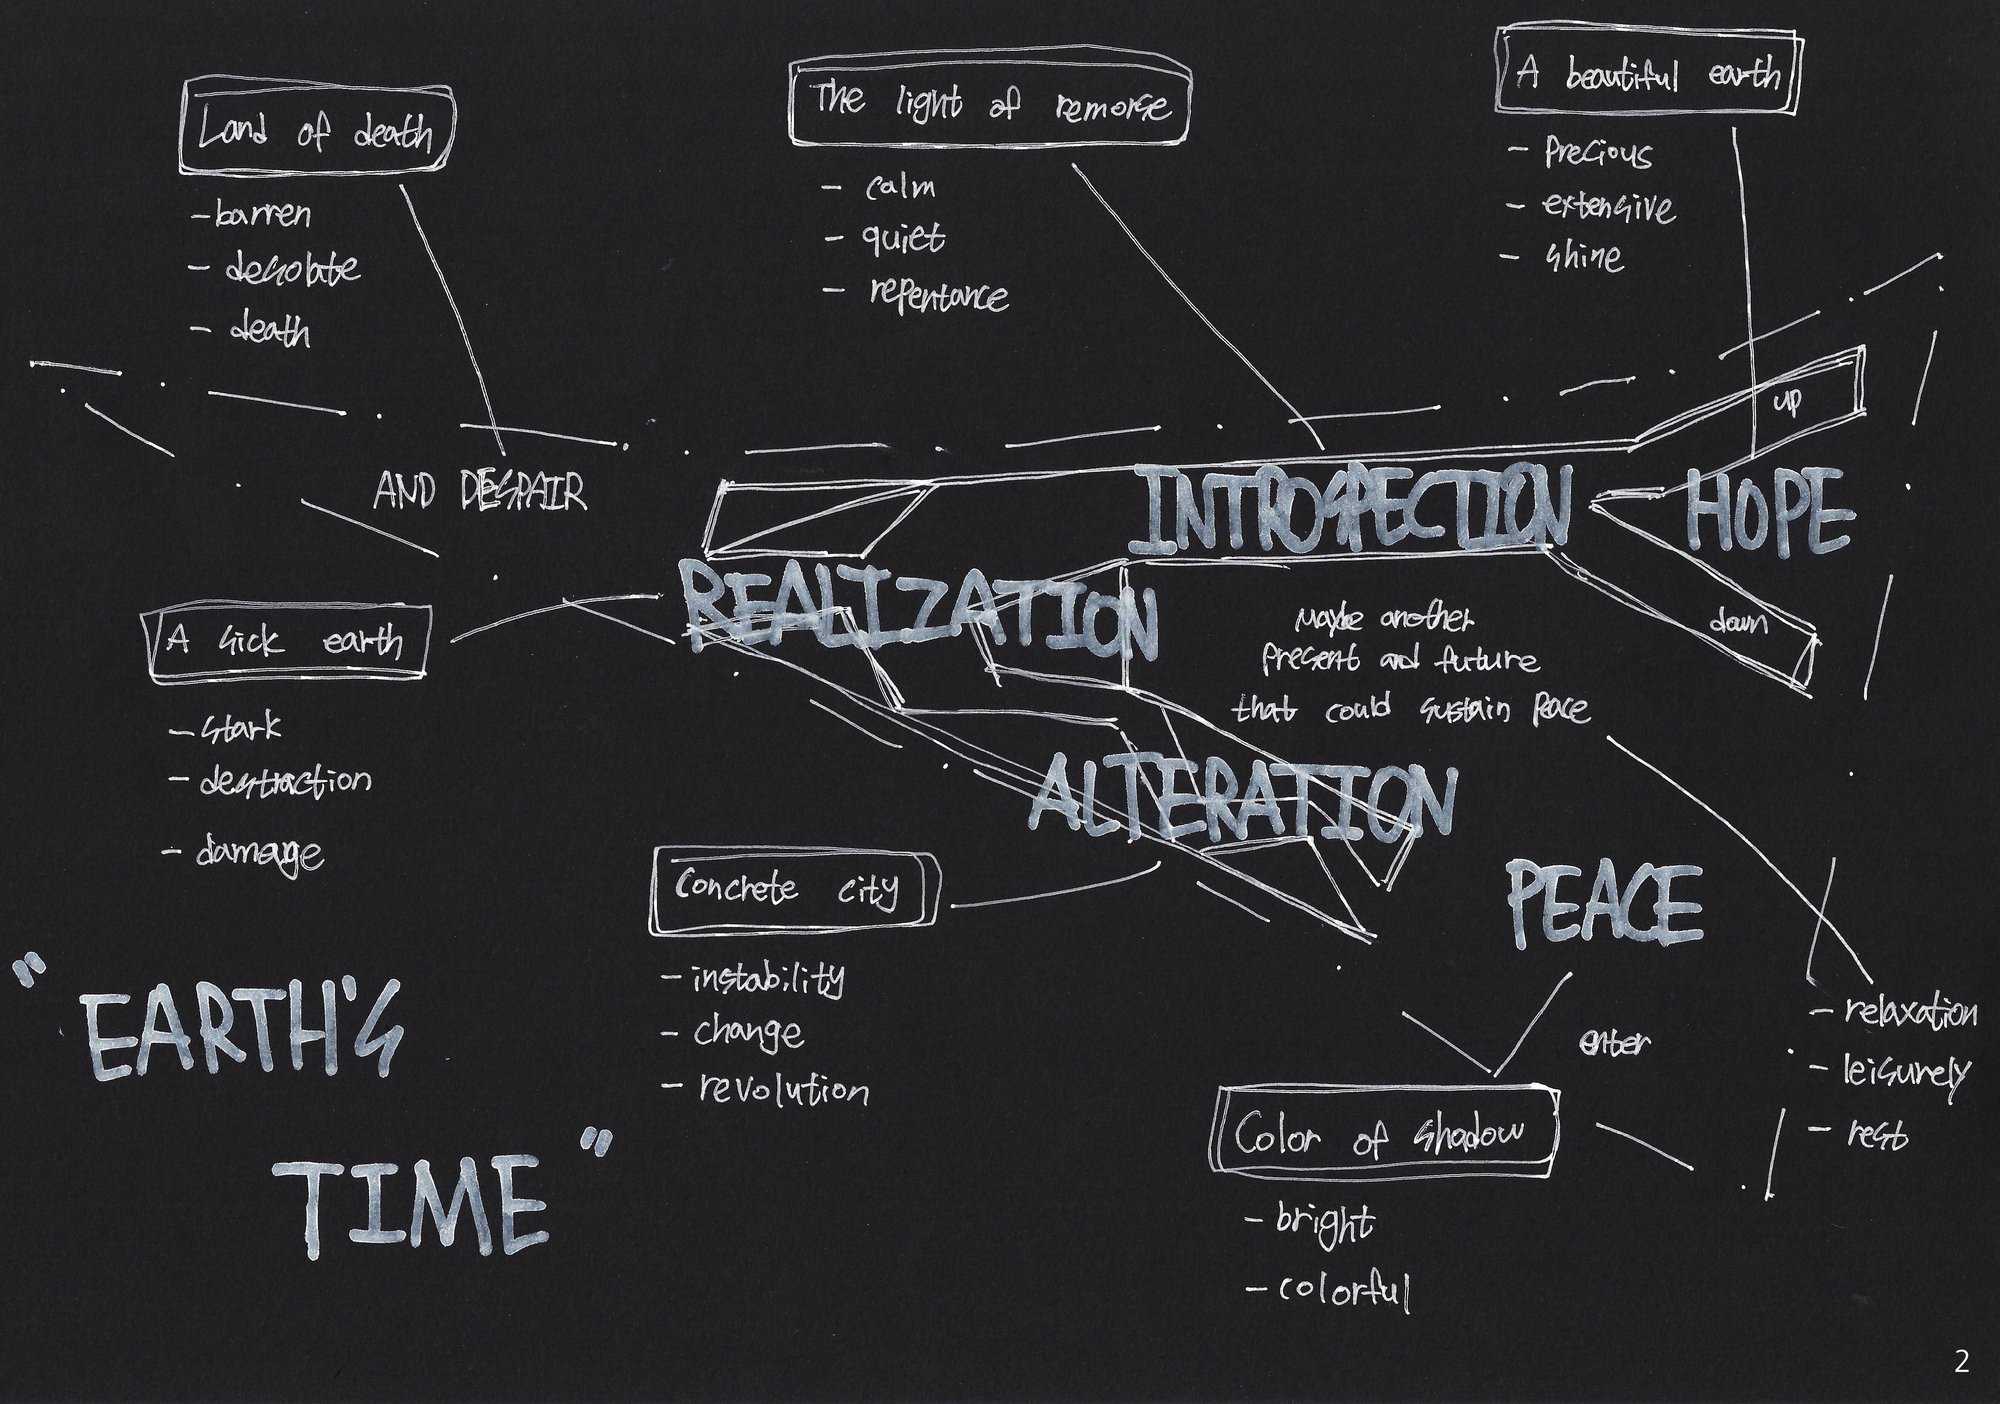 Land of death
- barren
- desolate
- death
The light of remorse
- calm
- quiet
- repentance
A beautiful earth
- Precious
- extensive
- shine
up
AND DESPAIR
INTROSPECTION
HOPE
REALIZATION
down
Maybe another
Present and future
that could sustain Peace
A sick earth
- stark
- destraction
- damage
ALTERATION
Concrete city
- instability
- change
- revolution
PEACE
enter
- relaxation
- leisurely
- rest
Color of shadow
- bright
- colorful
"EARTH'S
TIME"
2